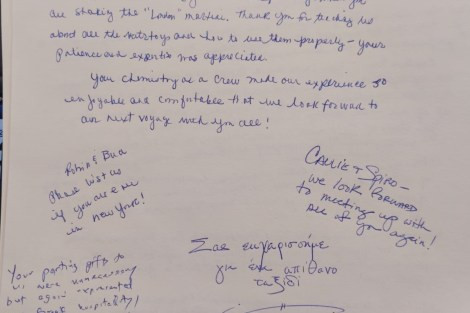 are sharing the "London" machine. Thank you for teaching us
about all the water toys and how to use them properly – your
patience and expertise was appreciated.
Your chemistry as a crew made our experience so
enjoyable and comfortable that we look forward to
our next voyage with you all!
Robin &
Please visit us
if you are ever
in New York!
CALLIE + SPIRO –
we look forward
to meeting up with
all of you again!
Σας ευχαριστούμε
για ένα απίθανο
ταξίδι
Your parting gifts to
us were unnecessary
but again represented
hospitality!